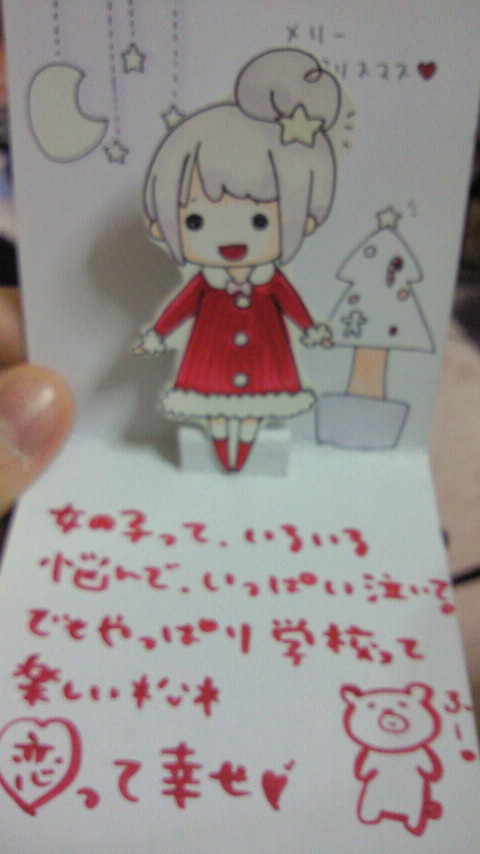 メリー
クリスマス♥
女の子って、いろいろ
悩んで、いっぱい泣いて。
でもやっぱり学校って
楽しいね
恋って幸せ♥